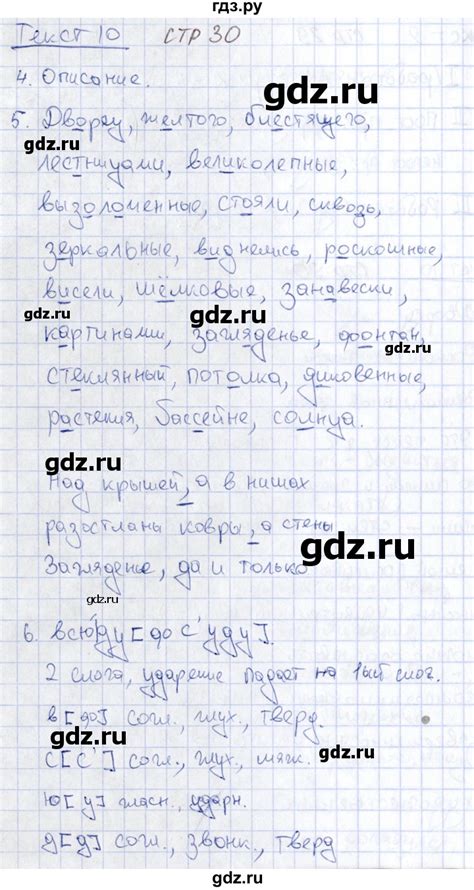 гдз.ру
Текст 10 стр 30
gdz.ru
4. Описание.
5. Дворец, желтого, блестящего,
лестницами, великолепные,
gdz.ru
вызоломенные, стояли, сквозь,
зеркальные, виднелись, роскошные,
висели, шёлковые, занавески,
gdz.ru
картинами, загляденье, фонтан,
gdz.ru
стеклянный, потолка, диковенные,
растения, бассейне, солнца.
gdz.ru
Над крышей, а в нишах
разостланы ковры, а стены
gdz.ru
Загляденье, да и только
6. всюду [фс'уду].
2 слога, ударение падает на 1ый слог.
в [ф] согл., глух., тверд.
gdz.ru
с [с'] согл., глух., мягк.
ю [у] гласн., ударн.
gdz.ru
д [д] согл., звонк., тверд
gdz.ru